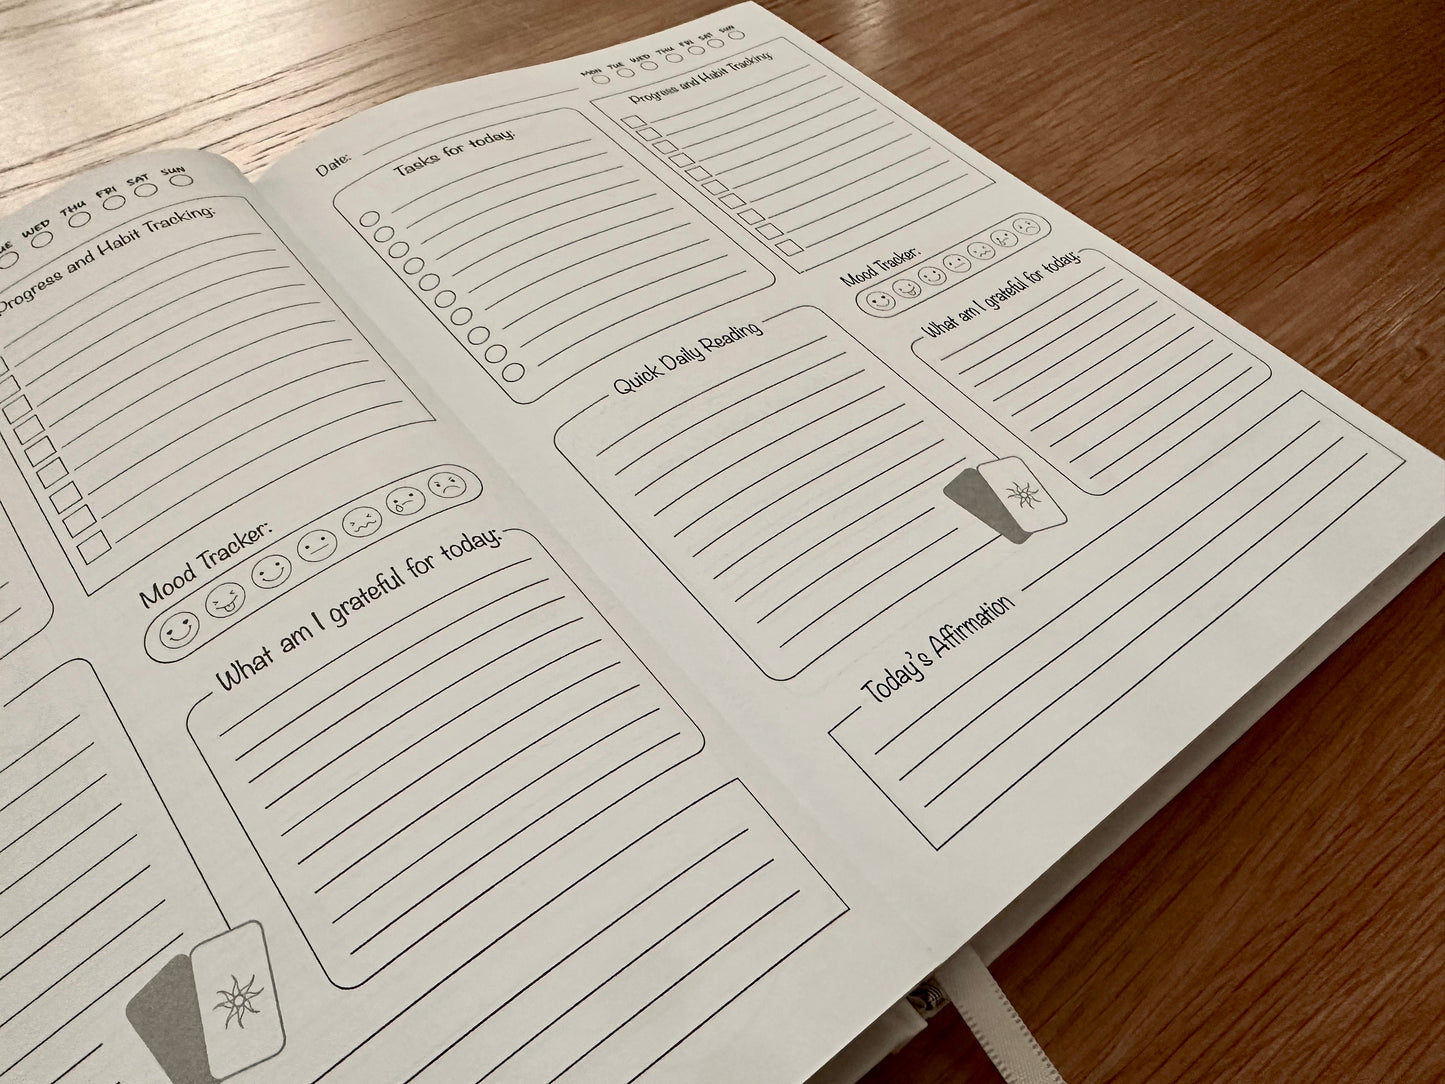 UE WED THU FRI SAT SUN
Progress and Habit Tracking:
Mood Tracker:
What am I grateful for today:
MON TUE WED THU FRI SAT SUN
Date:
Tasks for today:
Progress and Habit Tracking
Mood Tracker:
What am I grateful for today:
Quick Daily Reading
Today's Affirmation